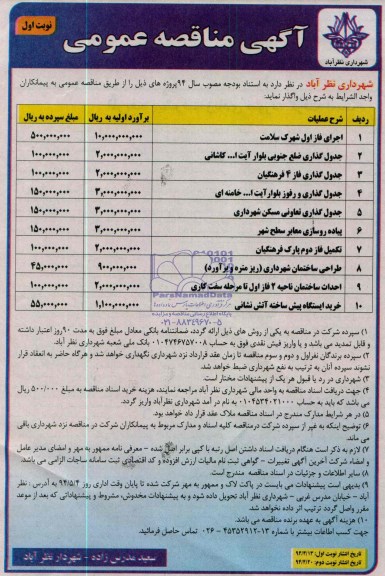 نوبت اول
آگهی مناقصه عمومی
شهرداری نظرآباد
شهرداری نظر آباد در نظر دارد به استناد بودجه مصوب سال ۹۴ پروژه های ذیل را از طریق مناقصه عمومی به پیمانکاران
واجد الشرایط به شرح ذیل واگذار نماید:
ردیف شرح عملیات برآورد اولیه به ریال مبلغ سپرده به ریال
۱ اجرای فاز اول شهرک سلامت ۱۰,۰۰۰,۰۰۰,۰۰۰ ۵۰۰,۰۰۰,۰۰۰
۲ جدول گذاری ضلع جنوبی بلوار آیت ا... کاشانی ۲,۰۰۰,۰۰۰,۰۰۰ ۱۰۰,۰۰۰,۰۰۰
۳ جدول گذاری فاز ۴ فرهنگیان ۲,۰۰۰,۰۰۰,۰۰۰ ۱۰۰,۰۰۰,۰۰۰
۴ جدول گذاری و رفوژ بلوار آیت ا... خامنه ای ۳,۰۰۰,۰۰۰,۰۰۰ ۱۵۰,۰۰۰,۰۰۰
۵ جدول گذاری تعاونی مسکن شهرداری ۳,۰۰۰,۰۰۰,۰۰۰ ۱۵۰,۰۰۰,۰۰۰
۶ پیاده روسازی معابر سطح شهر ۳,۰۰۰,۰۰۰,۰۰۰ ۱۵۰,۰۰۰,۰۰۰
۷ تکمیل فاز دوم پارک فرهنگیان ۲,۰۰۰,۰۰۰,۰۰۰ ۱۰۰,۰۰۰,۰۰۰
۸ طراحی ساختمان شهرداری (ریز متره و برآورد) ۹۰۰,۰۰۰,۰۰۰ ۴۵,۰۰۰,۰۰۰
۹ احداث ساختمان ناحیه ۲ فاز اول تا مرحله سفت کاری ۲,۰۰۰,۰۰۰,۰۰۰ ۱۰۰,۰۰۰,۰۰۰
۱۰ خرید ایستگاه پیش ساخته آتش نشانی ۱,۱۰۰,۰۰۰,۰۰۰ ۵۵,۰۰۰,۰۰۰
ParsNamadData
۰۲۱-۸۸۳۴۹۶۷۰-۵
۱) سپرده شرکت در مناقصه به یکی از روش های ذیل ارائه گردد، ضمانتنامه بانکی معادل مبلغ فوق به مدت ۹۰ روز اعتبار داشته
و قابل تمدید می باشد و یا واریز فیش نقدی فوق به حساب ۰۱۰۴۷۴۶۷۵۷۰۰۸ بانک ملی شعبه شهرداری نظر آباد.
۲) سپرده برندگان نفراول و دوم و سوم مناقصه تا زمان عقد قرارداد نزد شهرداری نگهداری خواهد شد و هرگاه حاضر به انعقاد قرار
نشوند سپرده آنان به ترتیب به نفع شهرداری ضبط خواهد شد.
۳) شهرداری در رد یا قبول هر یک از پیشنهادات مختار است.
۴) جهت دریافت اسناد مناقصه به واحد مالی شهرداری نظر آباد مراجعه نمایند، هزینه خرید اسناد مناقصه به مبلغ ۵۰۰/۰۰۰ ریال
می باشد که باید به حساب ۰۱۰۴۵۳۴۰۲۱۰۰۰ به نام در آمد شهرداری نظرآباد واریز گردد.
۵) در هر شرایط مدارک مندرج در اسناد مناقصه ملاک عقد قرار داد خواهد بود.
۶) توضیح اینکه به غیر از سپرده شرکت درمناقصه کلیه اسناد و مدارک مربوط به پیمانکاران شرکت در مناقصه نزد شهرداری باقی
می ماند.
۷) لازم به ذکر است هنگام دریافت اسناد داشتن اصل رتبه یا کپی برابر اصل شده - معرفی نامه ممهور به مهر و امضای مدیر عامل
و امضاء شرکت آخرین آگهی تغییرات - گواهی ثبت نام مالیات ارزش افزوده و کد اقتصادی ثبت سامانه ساجات الزامی می باشد.
۸) سایر اطلاعات و جزئیات در اسناد مناقصه مندرج است.
۹) بدیهی است پیشنهادات می بایست در پاکت لاک و ممهور به مهر شرکت شده تا پایان وقت اداری روز ۹۴/۵/۴ به آدرس: نظر
آباد - خیابان مدرس غربی - شهرداری نظر آباد تحویل داده شود و به پیشنهادات مخدوش، مشروط و پیشنهاداتی که بعد از موعد
مقرر واصل گردد ترتیب اثر داده نخواهد شد.
۱۰) هزینه آگهی به عهده برنده مناقصه می باشد.
جهت کسب اطلاعات بیشتر با شماره ۱۳-۴۵۳۵۲۹۱۲ - ۰۲۶ تماس حاصل فرمائید.
تاریخ انتشار نوبت اول: ۹۴/۴/۱۳
تاریخ انتشار نوبت دوم: ۹۴/۴/۲۰
سعید مدرس زاده - شهردار نظر آباد